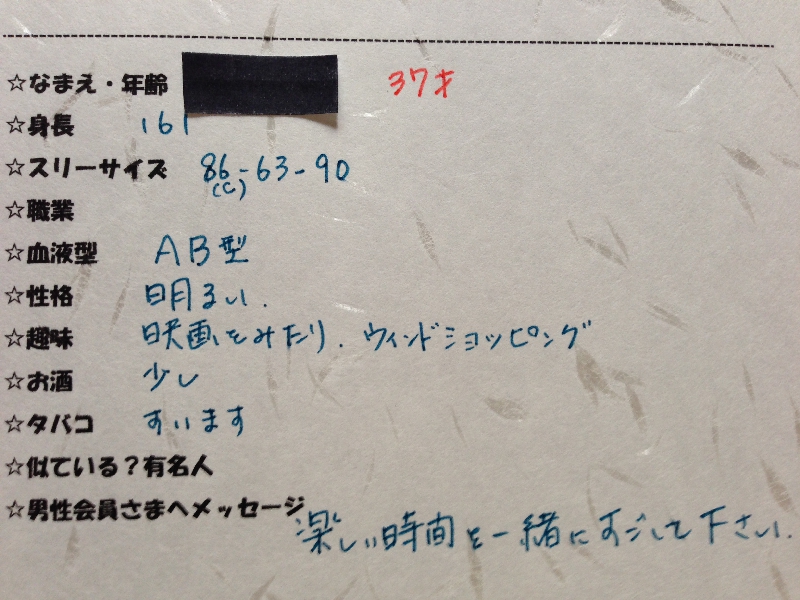 ☆なまえ・年齢 37才
☆身長 161
☆スリーサイズ 86-63-90
(C)
☆職業
☆血液型 AB型
☆性格 明るい.
☆趣味 映画をみたり.ウィンドショッピング
☆お酒 少し
☆タバコ すいます
☆似ている?有名人
☆男性会員さまへメッセージ
楽しい時間を一緒にすごして下さい.